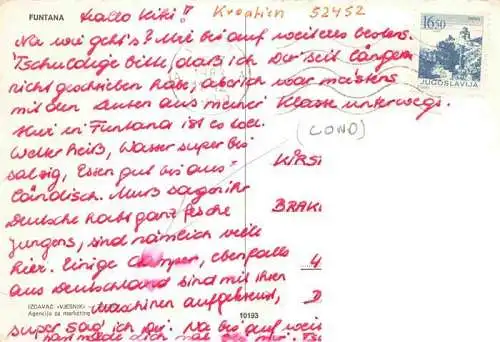 FUNTANA
Hallo Kiki!! Kroatien 52452
Na wie geht's? Mir bis auf weiteres bestens.
Tschuldige bitte, daß ich Dir seit längerm
nicht geschrieben habe, aber ich war meistens
mit den Leuten aus meiner Klasse unterwegs.
Hier in Funtana ist es toll.
Wetter heiß, Wasser super bis
salzig, Essen gut bis aus-
ländisch. Muß sagen ihr
Deutsche habt ganz fesche
Jungens, sind nämlich viele
hier. Einige Camper, ebenfalls
aus Deutschland sind mit ihren
Maschinen aufgekreuzt,
super sag' ich Dir. Na bis auf weit
mal
16,50
JUGOSLAVIJA
(LOND)
KIRSI
BRAKE
4
D
IZDAVAČ »VJESNIK«
Agencija za marketing
10193